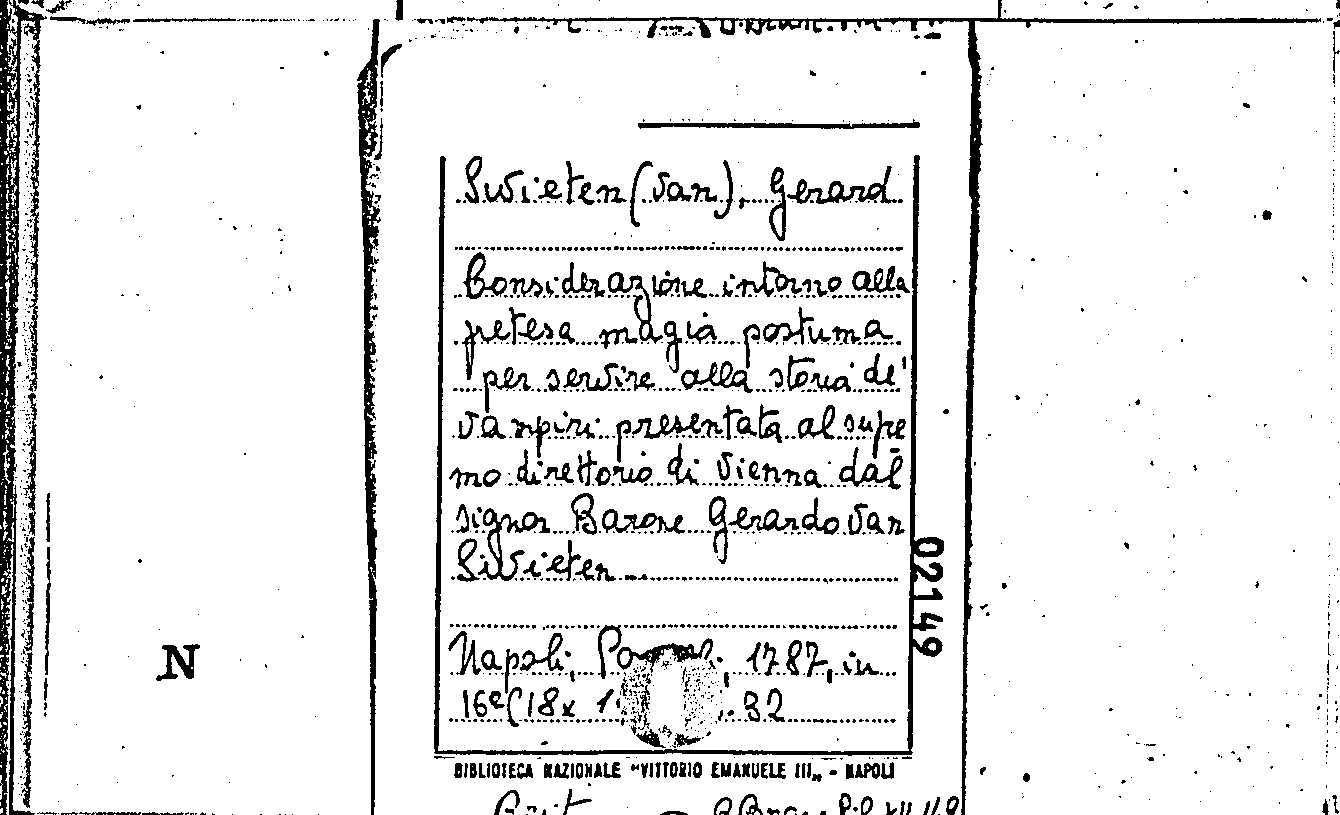 Swieten (van), Gerard
Considerazione intorno alla
pretesa magia postuma
per servire alla storia de'
vampiri presentata al supre
mo direttorio di Vienna dal
signor Barone Gerardo van
Swieten...
Napoli, 1787, in
16º (18x 32
BIBLIOTECA NAZIONALE "VITTORIO EMANUELE III„ - NAPOLI
02149
N